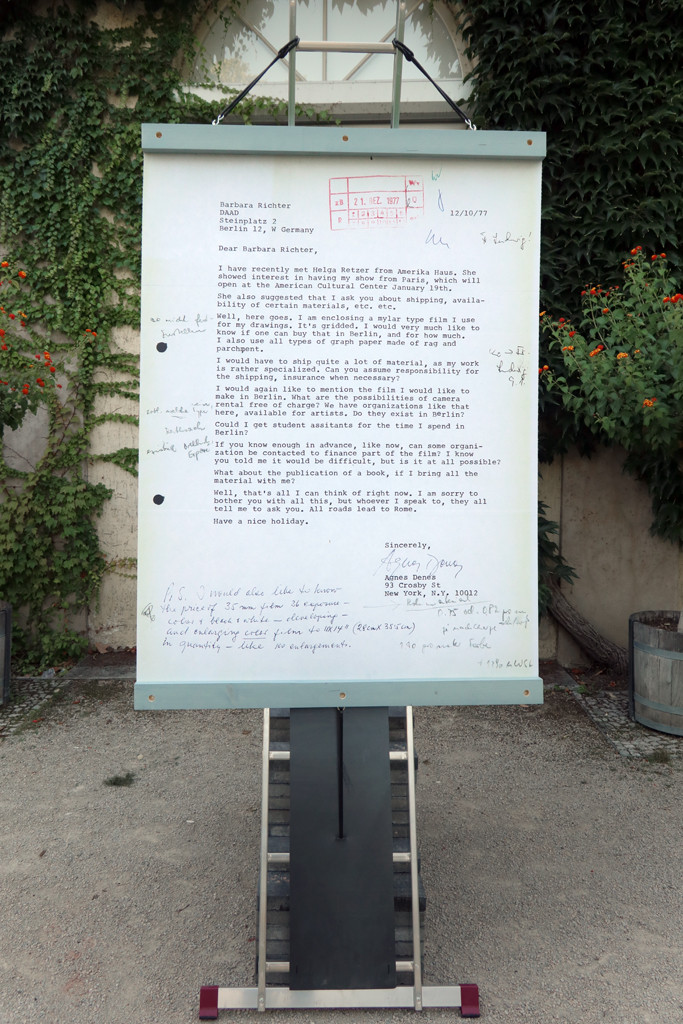 21. DEZ. 1977
Barbara Richter
DAAD
12/10/77
Steinplatz 2
Berlin 12, W Germany
Dear Barbara Richter,
I have recently met Helga Retzer from Amerika Haus. She
showed interest in having my show from Paris, which will
open at the American Cultural Center January 19th.
She also suggested that I ask you about shipping, availa-
bility of certain materials, etc. etc.
Well, here goes. I am enclosing a mylar type film I use
for my drawings. It's gridded. I would very much like to
know if one can buy that in Berlin, and for how much.
I also use all types of graph paper made of rag and
parchpent.
I would have to ship quite a lot of material, as my work
is rather specialized. Can you assume responsibility for
the shipping, insurance when necessary?
I would again like to mention the film I would like to
make in Berlin. What are the possibilities of camera
rental free of charge? We have organizations like that
here, available for artists. Do they exist in Berlin?
Could I get student assitants for the time I spend in
Berlin?
If you know enough in advance, like now, can some organi-
zation be contacted to finance part of the film? I know
you told me it would be difficult, but is it at all possible?
What about the publication of a book, if I bring all the
material with me?
Well, that's all I can think of right now. I am sorry to
bother you with all this, but whoever I speak to, they all
tell me to ask you. All roads lead to Rome.
Have a nice holiday.
Sincerely,
Agnes Denes
Agnes Denes
93 Crosby St
New York, N.Y. 10012
P.S. I would also like to know
the price of 35 mm film 36 exposure -
color & black & white - developing
and enlarging color from to 11x14" (28cm x 35.5cm)
in quantity - like 100 enlargements.